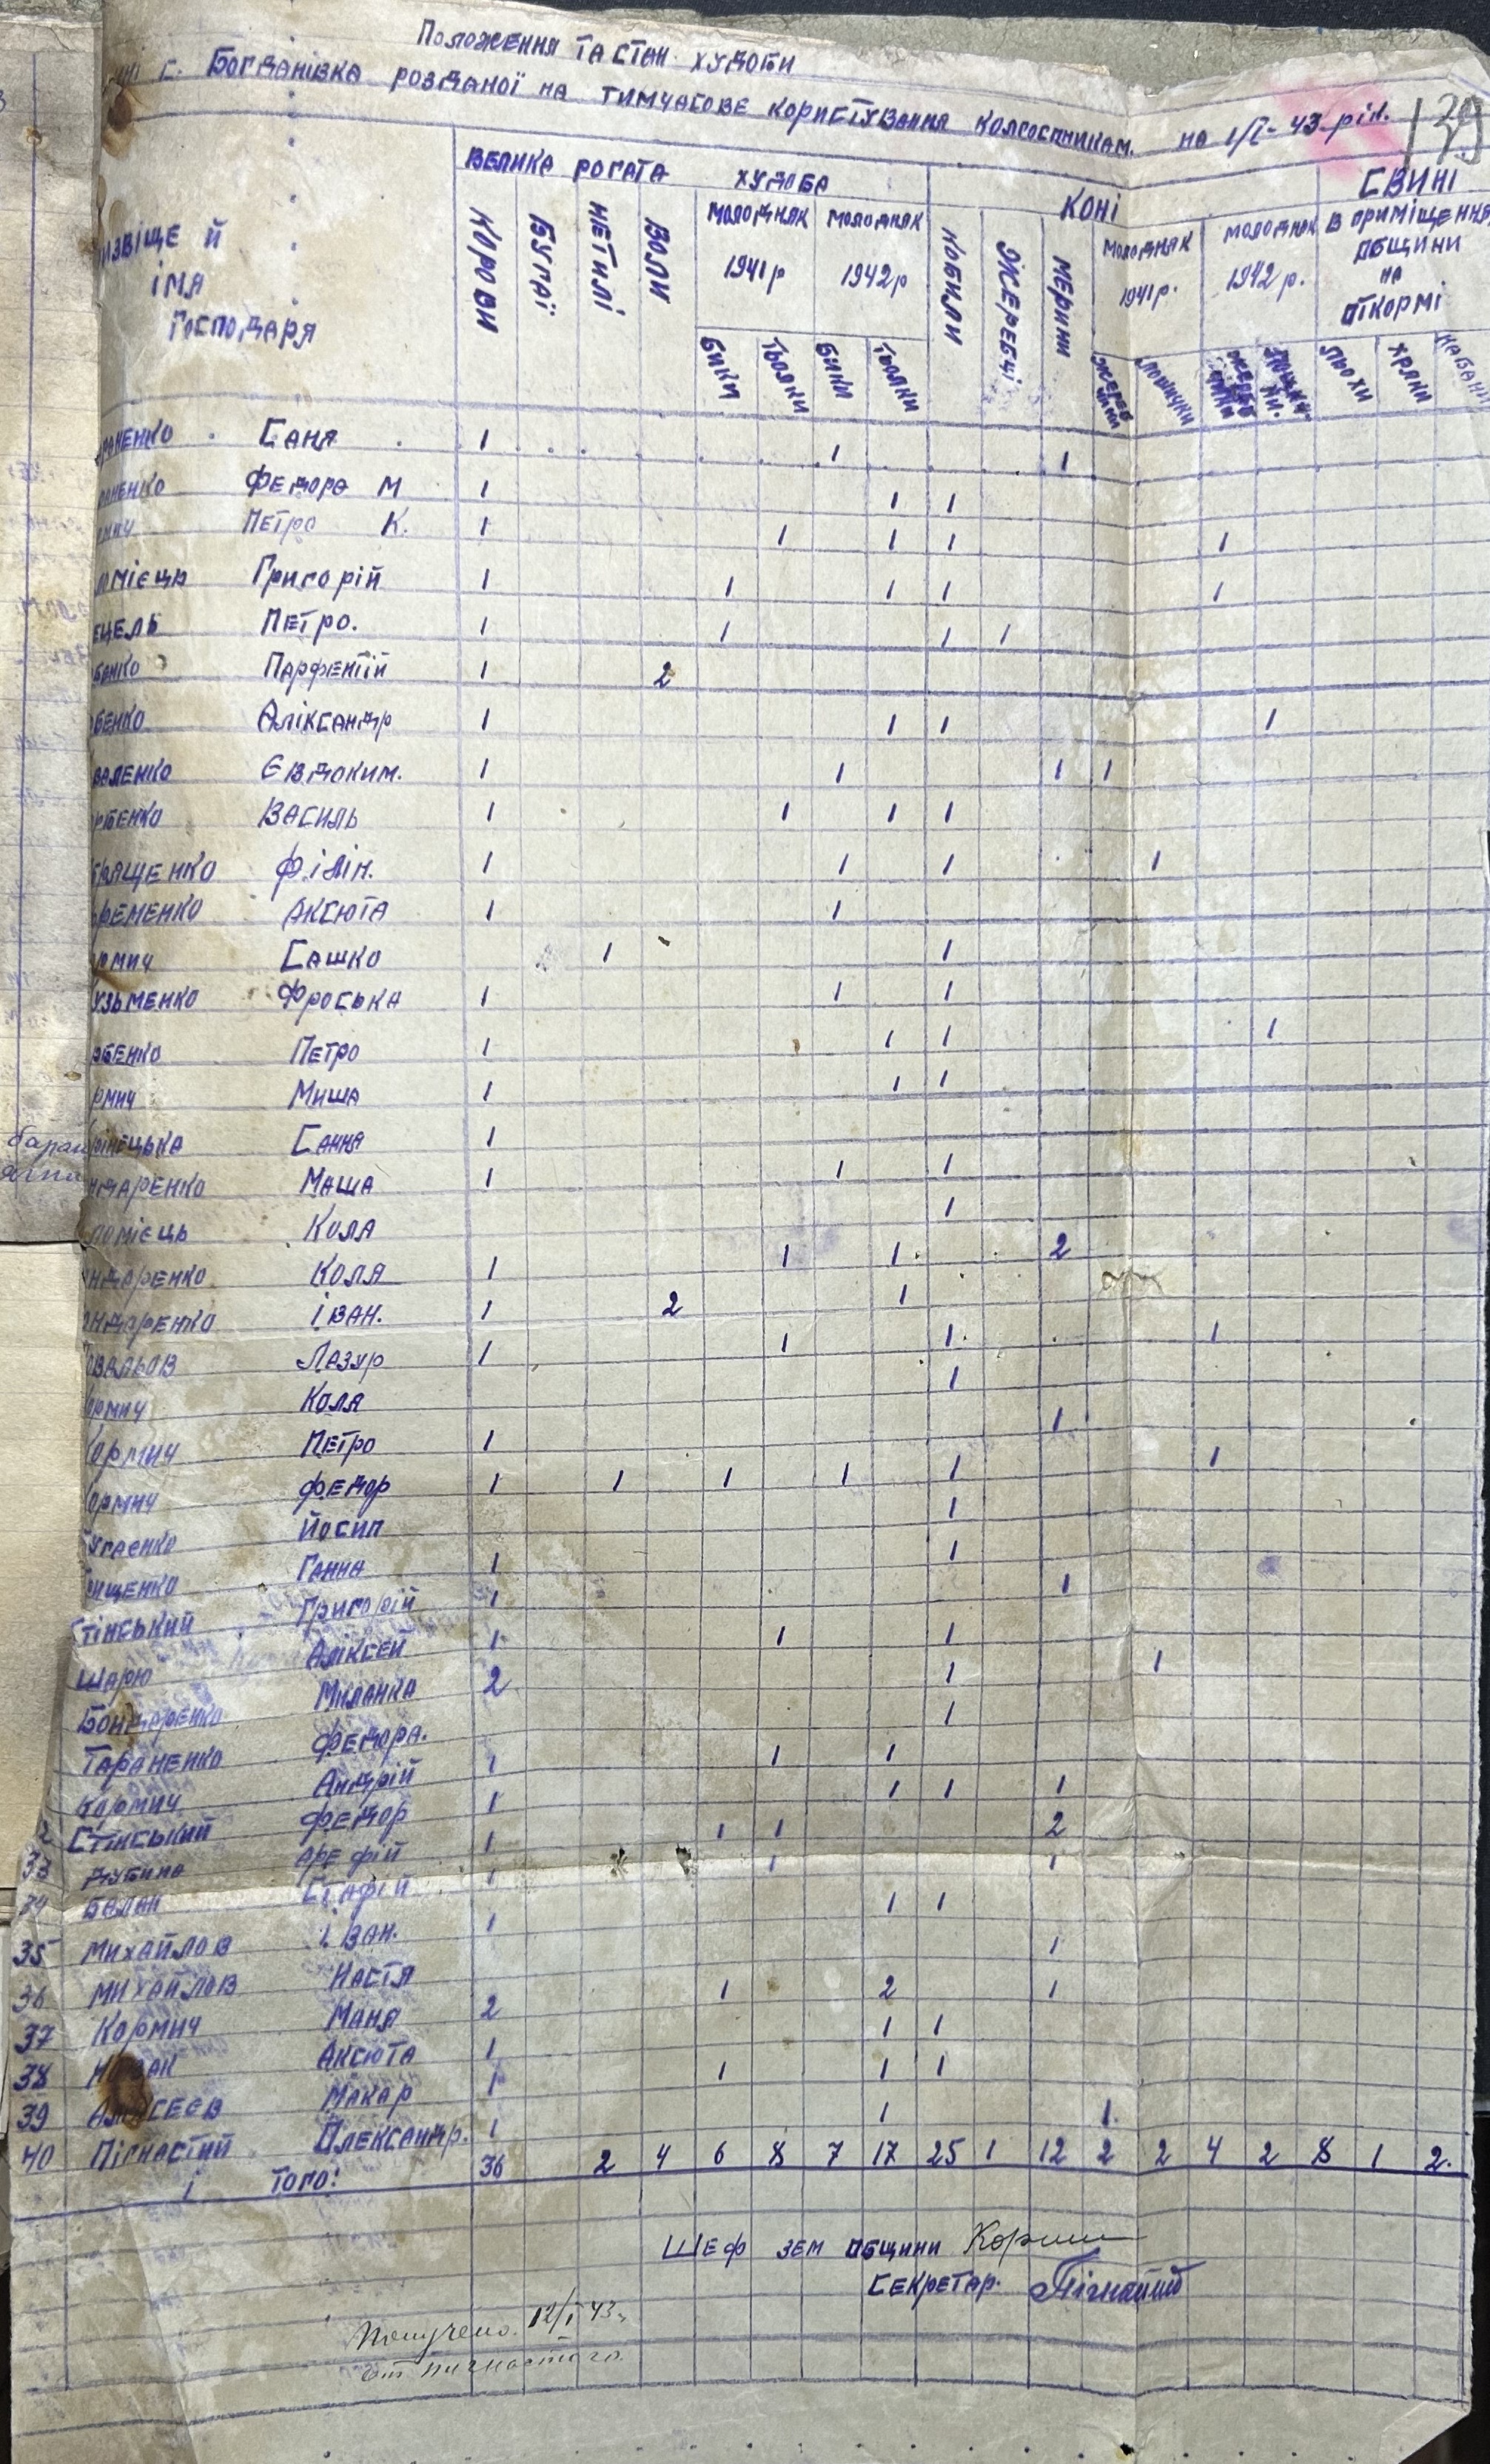 Положення та стан худоби
с. Богданівка розданої на тимчасове користування колгоспникам. на 1/I-43 рік.
139
ізвіще й імя господаря
Велика рогата худоба
Коні
Свині
Корови Бугаї Нетилі Воли молодняк 1941р молодняк 1942р Кобили Жеребці Мерини молодняк 1941р. молодняк 1942 р. в приміщення общини на откормі
бики тьолки бики тьолки лошички льохи хряки кабани
раненко Саня 1 1 1
раненко Федора М 1 1 1
рмич Петро К. 1 1 1 1 1
омієць Григорій 1 1 1 1 1
ецель Петро. 1 1 1 1
бенко Парфентій 1 2
бенко Аліксандр 1 1 1 1
валенко Євдоким. 1 1 1 1
рбенко Василь 1 1 1 1
тращенко Філін. 1 1 1 1
фременко Аксюта 1 1
ормич Сашко 1 1
узьменко Фроська 1 1 1
рбенко Петро 1 1 1 1
рмич Миша 1 1 1
рінецька Санна 1
ндаренко Маша 1 1 1
ломієць Кола 1
ндаренко Коля 1 1 1 2
ондаренко Іван. 1 2 1
овальов Лазур 1 1 1 1
ормич Коля 1
Кормич Петро 1 1
ормич Федор 1 1 1 1 1 1
угаєнко Йосип 1
рищенко Ганна 1 1
Стінський Григорій 1 1
Шарю Аліксей 1 1 1
Бондаренко Миланка 2 1 1
Тараненко Федора. 1
Кормич Андрій 1 1 1
2 Стінський Федор 1 1 1 1
33 Дубина Арефій 1 1 1 2
34 Балан Стафій 1 1 1
35 Михайлов Іван. 1 1 1
36 Михайлов Настя 1
37 Кормич Маня 2 1 2 1
38 Новак Аксюта 1 1 1
39 Алексеєв Макар 1 1 1 1
40 Пігнастий Олександр. 1 1 1
І того: 36 2 4 6 8 7 17 25 1 12 2 2 4 2 8 1 2.
Шеф зем общини Кормич
Секретар. Пігнастий
Получено 12/I 43г
от пигнастого.
баран